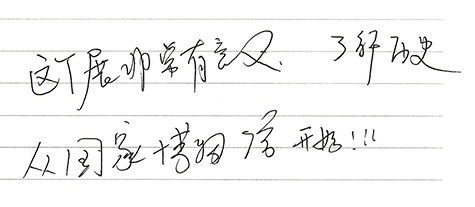 这个展非常有意义. 了解历史
从国家博物馆开始!!!